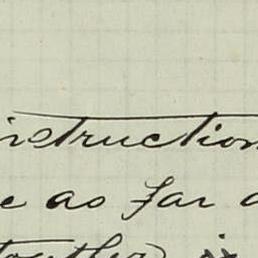 instruction
e as far a
together is